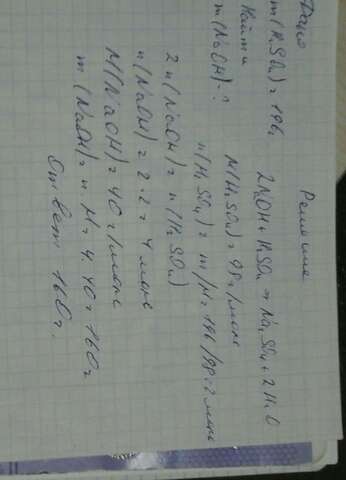 Дано
m(H₂SO₄) = 196г
Найти
m(NaOH) - ?
Решение
2NaOH + H₂SO₄ → Na₂SO₄ + 2H₂O
M(H₂SO₄) = 98 г/моль
n(H₂SO₄) = m/M = 196/98 = 2 моль
2 n(NaOH) = n(H₂SO₄)
n(NaOH) = 2·2 = 4 моль
M(NaOH) = 40 г/моль
m(NaOH) = n·M = 4·40 = 160г
Ответ 160г.